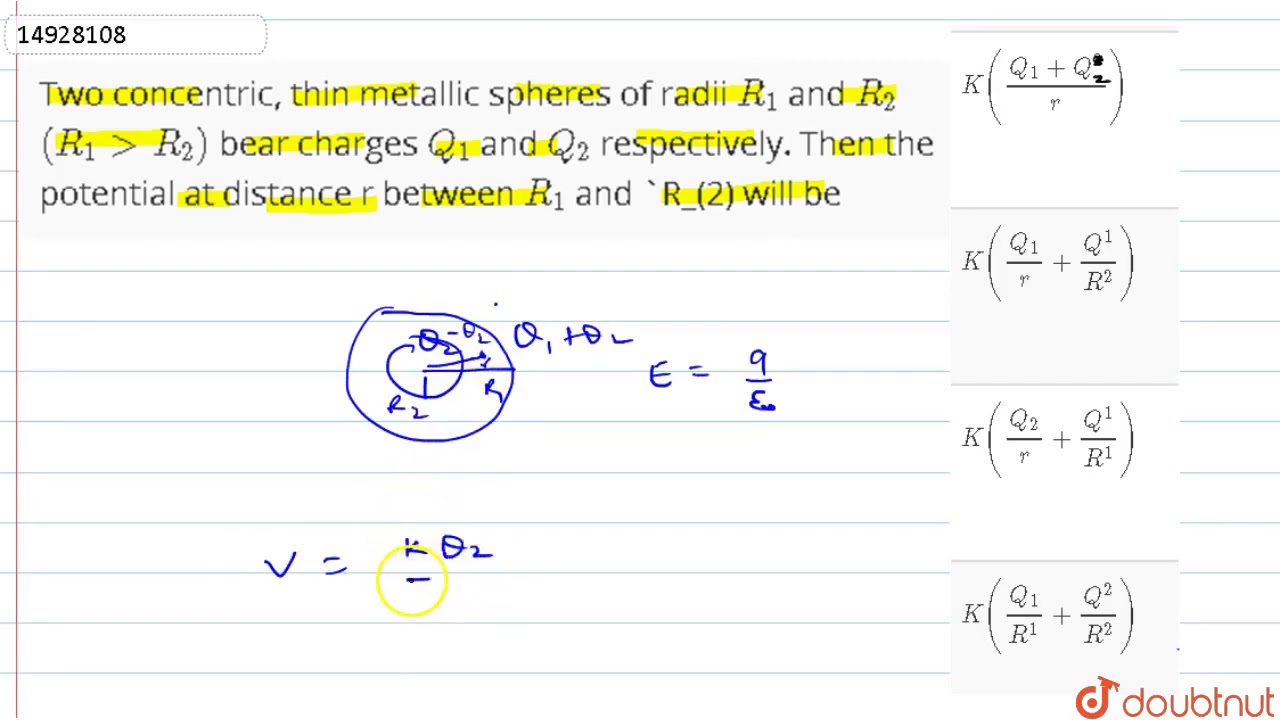 14928108
Two concentric, thin metallic spheres of radii R₁ and R₂
(R₁ > R₂) bear charges Q₁ and Q₂ respectively. Then the
potential at distance r between R₁ and `R_(2) will be
K((Q₁ + Q₂)/r)
K(Q₁/r + Q¹/R²)
K(Q₂/r + Q¹/R¹)
K(Q₁/R¹ + Q²/R²)
Q₂ -Q₂ Q₁+Q₂
r
R₂ R₁
E = q/ε₀
V = K Q₂
doubtnut